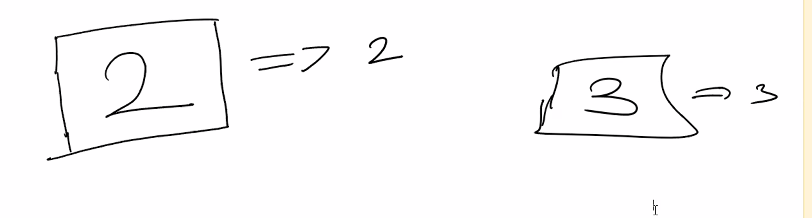 2 => 2 3 => 3